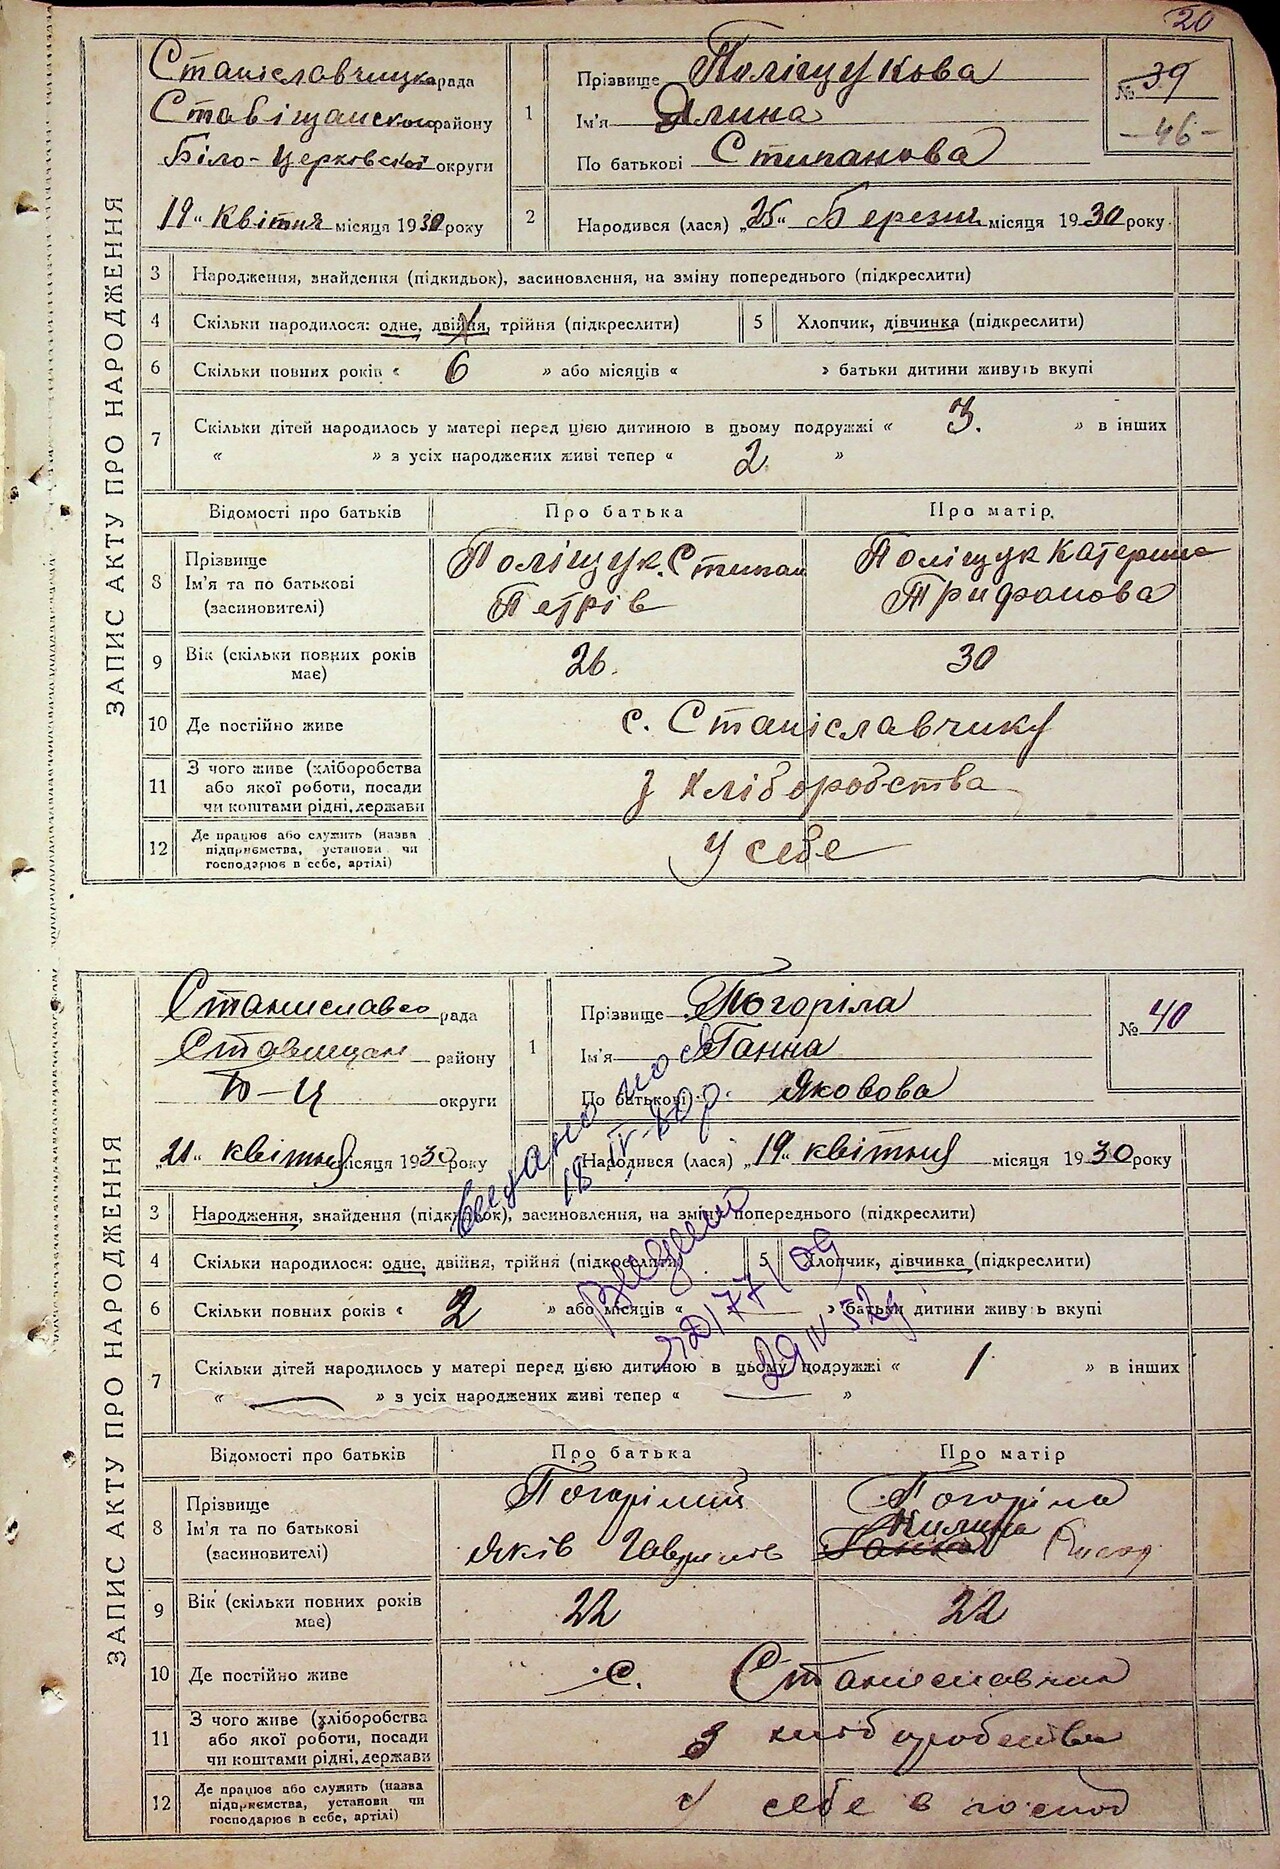 20
ЗАПИС АКТУ ПРО НАРОДЖЕННЯ
Станіславчицка рада
Ставіщанског району
Біло-Церковської округи
19 " Квітня місяця 1930 року
1
Прізвище Поліщукова
Ім'я Ялина
По батькові Стипанова
№ 39
- 46 -
2 Народився (лася) „25" Березня місяця 1930 року
3 Народження, знайдення (підкидьок), засиновлення, на зміну попереднього (підкреслити)
4 Скільки народилося: одне, двійня, трійня (підкреслити) 5 Хлопчик, дівчинка (підкреслити)
6 Скільки повних років « 6 » або місяців « » батьки дитини живуть вкупі
7 Скільки дітей народилось у матері перед цією дитиною в цьому подружжі « 3. » в інших
« » з усіх народжених живі тепер « 2 »
Відомості про батьків Про батька Про матір
8 Прізвище Ім'я та по батькові (засиновителі)
Поліщук Стипан
Петрів
Поліщук Катерина
Трифонова
9 Вік (скільки повних років має) 26. 30
10 Де постійно живе с. Станіславчику
11 З чого живе (хліборобства або якої роботи, посади чи коштами рідні, держави
з хліборобства
12 Де працює або служить (назва підприємства, установи чи господарює в себе, артілі)
У себе
ЗАПИС АКТУ ПРО НАРОДЖЕННЯ
рада
Ставищан району
Б-Ц округи
„21" квітня місяця 1930 року
1
Прізвище Погоріла
Ім'я Ганна
По батькові Яковова
№ 40
Народився (лася) „19" квітня місяця 1930 року
3 Народження, знайдення (підкидьок), засиновлення, на зміну попереднього (підкреслити)
4 Скільки народилося: одне, двійня, трійня (підкреслити) 5 Хлопчик, дівчинка (підкреслити)
6 Скільки повних років « 2 » або місяців « » батьки дитини живуть вкупі
7 Скільки дітей народилось у матері перед цією дитиною в цьому подружжі « 1 » в інших
« — » з усіх народжених живі тепер « — »
18 IV-60р.
29 IV 52
Відомості про батьків Про батька Про матір
8 Прізвище Ім'я та по батькові (засиновителі)
Погорілий
Яків Гаврилов
Погоріла
Килина
Ганна
9 Вік (скільки повних років має) 22 22
10 Де постійно живе с. Станиславчик
11 З чого живе (хліборобства або якої роботи, посади чи коштами рідні, держави
З хліборобства
12 Де працює або служить (назва підприємства, установи чи господарює в себе, артілі)
у себе в господ